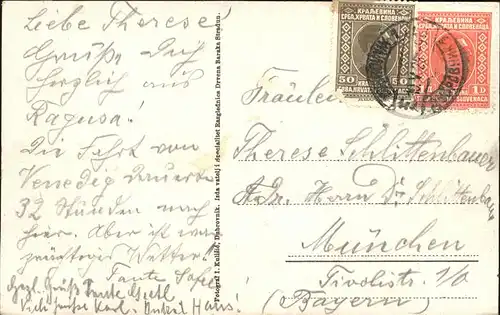 Liebe Therese!
Grüße Dich
herzlich aus
Ragusa!
Die Fahrt von
Venedig dauerte
32 Stunden nach
hier. Aber ist
Wetter!
Tante
Herzl. Grüße Tante Gretl
Viele Grüße Karl. Onkel Hans!
Fotograf I. Kulišić, Dubrovnik. Izda vatelj i specialitet Razglednica Drvena Baraka Stradun.
КРАЉЕВИНА
СРБА, ХРВАТА И СЛОВЕНАЦА
50 50
КРАЉЕВИНА
СРБА, ХРВАТА И СЛОВЕНАЦА
1Д 1D
Fräulein
Therese Schlittenbauer
A. Dr. Herrn Dr. Schlittenbauer
München
Tivolistr. 1/0
(Bayern)